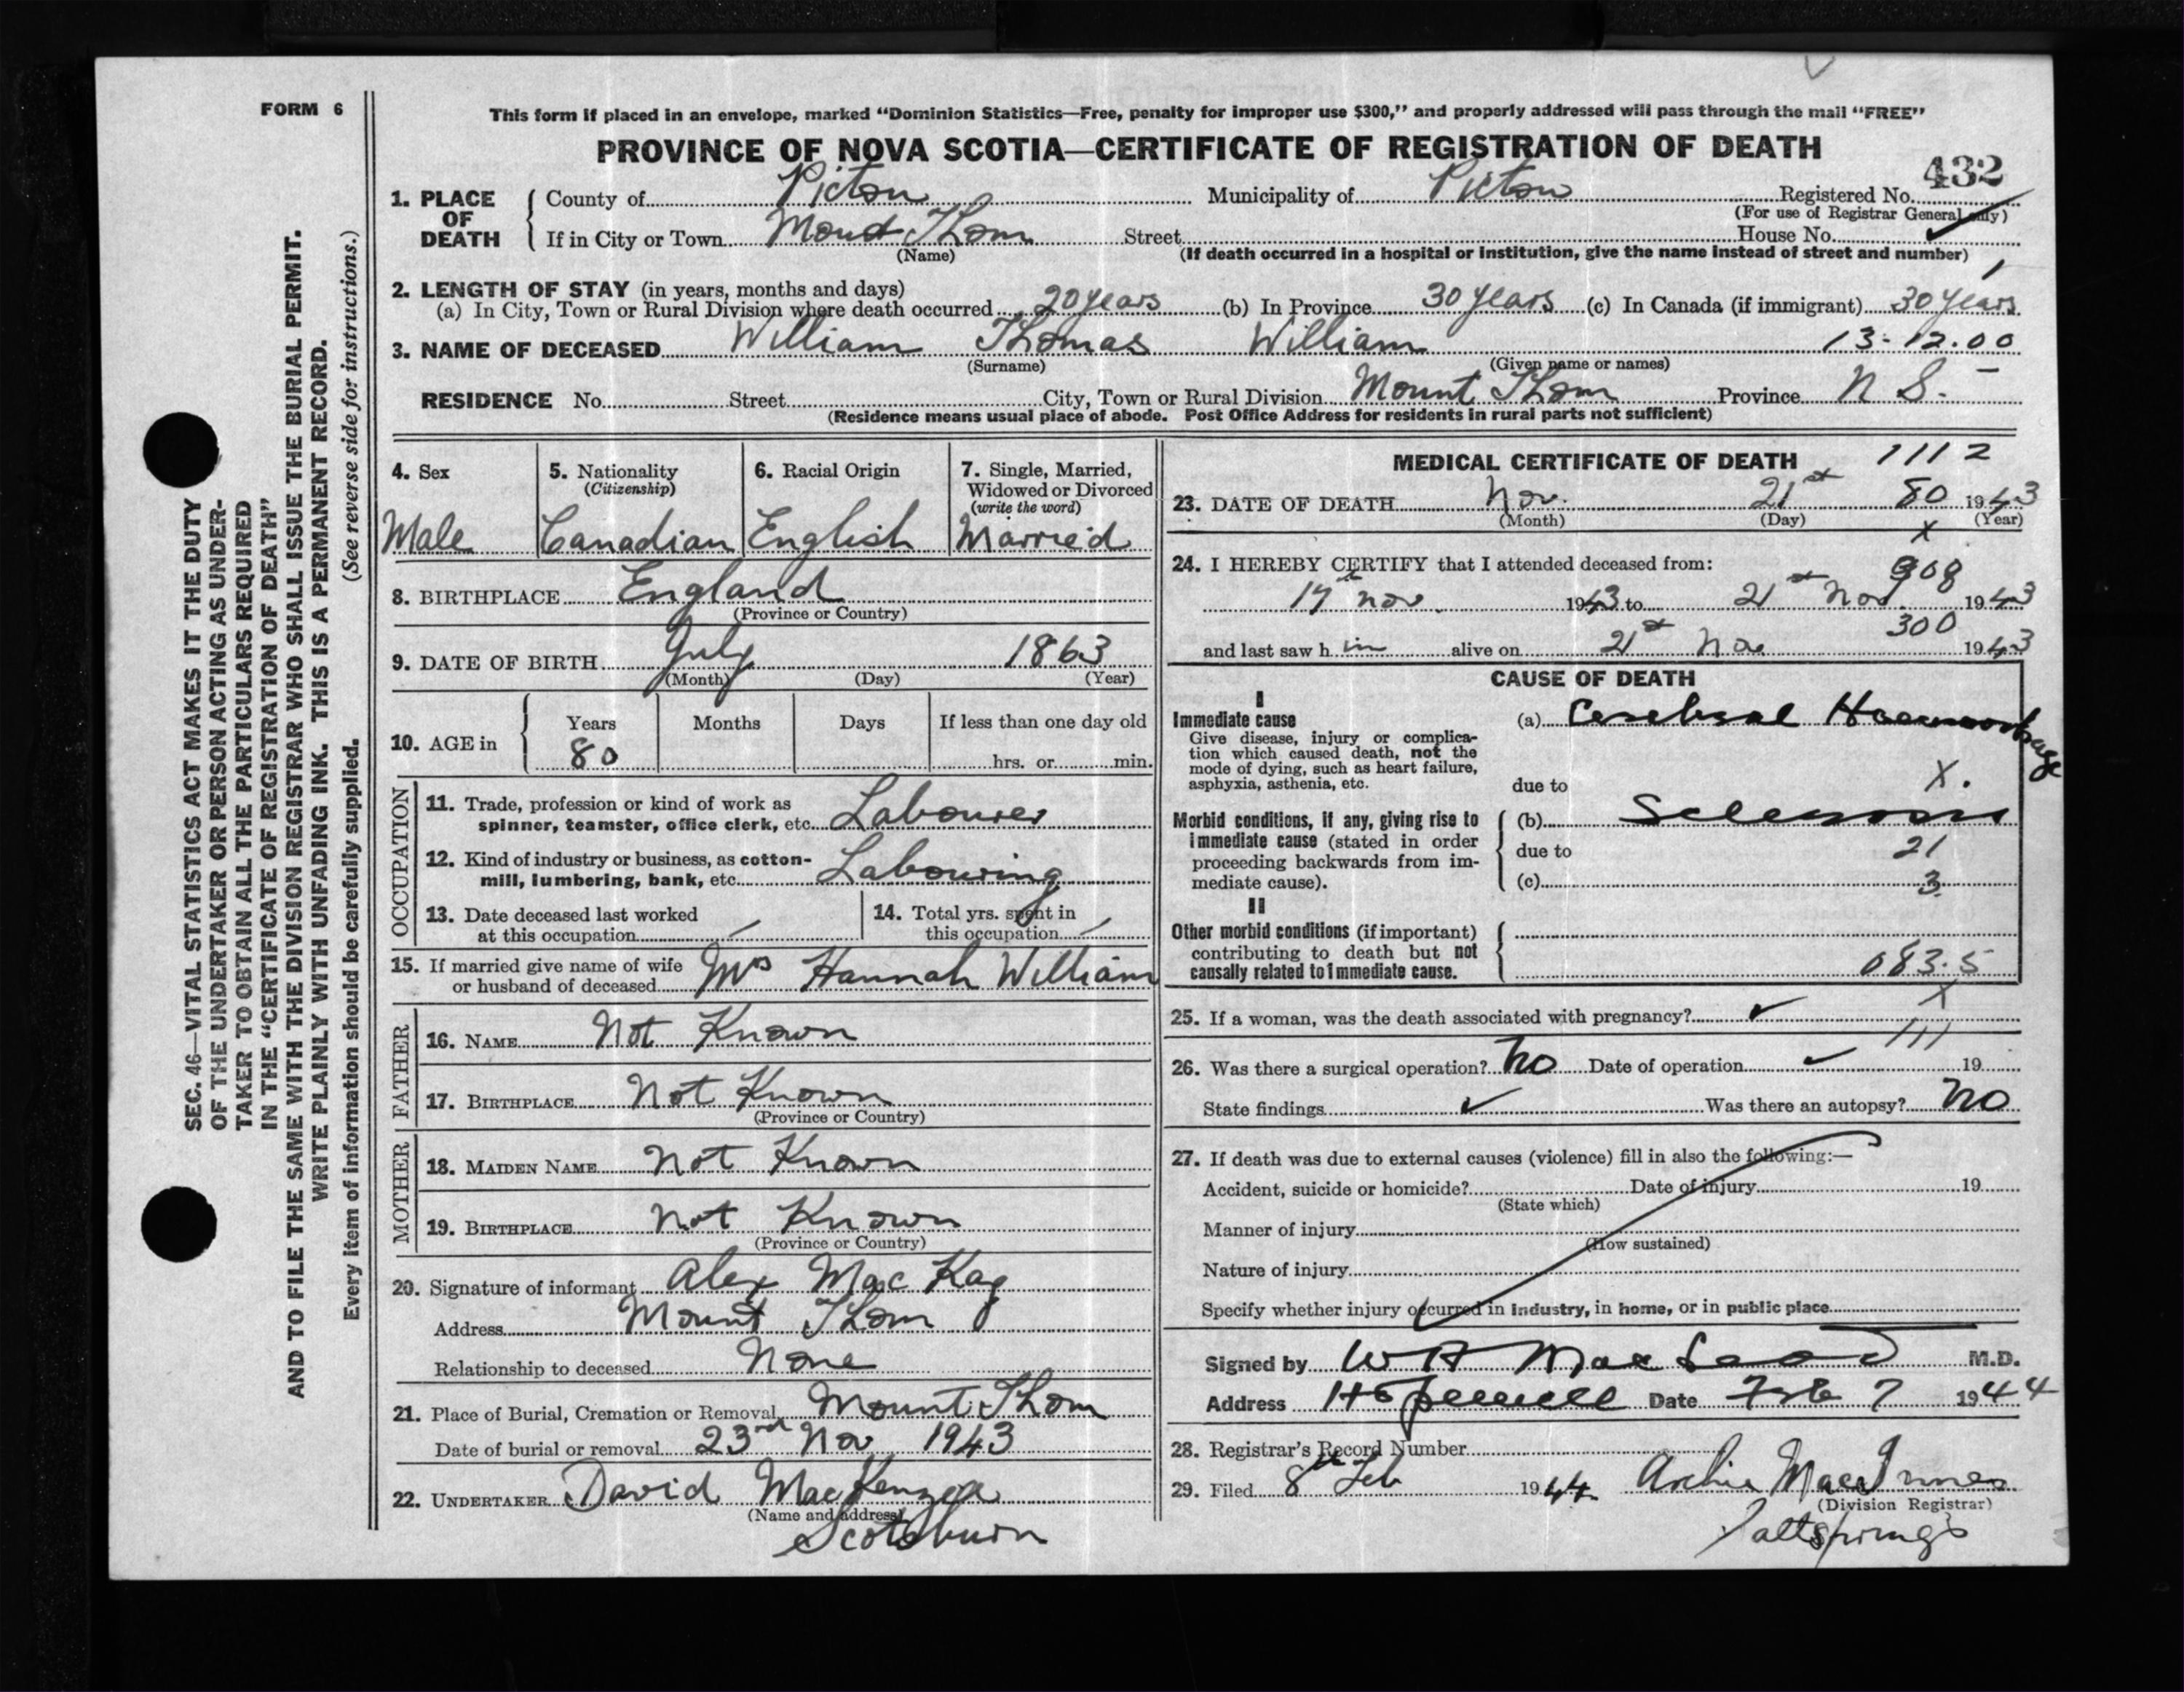 FORM 6
This form if placed in an envelope, marked “Dominion Statistics—Free, penalty for improper use $300,” and properly addressed will pass through the mail “FREE”
PROVINCE OF NOVA SCOTIA—CERTIFICATE OF REGISTRATION OF DEATH
432
1. PLACE OF DEATH County of Pictou Municipality of Pictou Registered No.
(For use of Registrar General only)
If in City or Town Mount Thom Street House No.
(Name) (If death occurred in a hospital or institution, give the name instead of street and number)
2. LENGTH OF STAY (in years, months and days)
(a) In City, Town or Rural Division where death occurred 20 years (b) In Province 30 years (c) In Canada (if immigrant) 30 years
3. NAME OF DECEASED William Thomas William 13-12.00
(Surname) (Given name or names)
RESIDENCE No. Street City, Town or Rural Division Mount Thom Province N S.
(Residence means usual place of abode. Post Office Address for residents in rural parts not sufficient)
4. Sex Male
5. Nationality (Citizenship) Canadian
6. Racial Origin English
7. Single, Married, Widowed or Divorced (write the word) Married
8. BIRTHPLACE England
(Province or Country)
9. DATE OF BIRTH July 1863
(Month) (Day) (Year)
10. AGE in Years Months Days If less than one day old
80 hrs. or min.
OCCUPATION
11. Trade, profession or kind of work as
spinner, teamster, office clerk, etc. Labourer
12. Kind of industry or business, as cotton-
mill, lumbering, bank, etc. Labouring
13. Date deceased last worked
at this occupation
14. Total yrs. spent in
this occupation
15. If married give name of wife
or husband of deceased Mrs Hannah William
FATHER
16. NAME Not Known
17. BIRTHPLACE Not Known
(Province or Country)
MOTHER
18. MAIDEN NAME Not Known
19. BIRTHPLACE Not Known
(Province or Country)
20. Signature of informant Alex MacKay
Address Mount Thom
Relationship to deceased None
21. Place of Burial, Cremation or Removal Mount Thom
Date of burial or removal 23rd Nov 1943
22. UNDERTAKER David MacKenzea
(Name and address)
Scotsburn
MEDICAL CERTIFICATE OF DEATH 1112
23. DATE OF DEATH Nov. 21st 80 1943
(Month) (Day) (Year)
x
24. I HEREBY CERTIFY that I attended deceased from:
908
Nov. 1943 to 21st Nov 1943
300
and last saw h im alive on 21st Nov 1943
CAUSE OF DEATH
I
Immediate cause (a) Cerebral Haemorrhage
Give disease, injury or complica-
tion which caused death, not the
mode of dying, such as heart failure,
asphyxia, asthenia, etc. due to X.
Morbid conditions, if any, giving rise to (b) Sclerosis
immediate cause (stated in order due to 21
proceeding backwards from im-
mediate cause). (c) 3
II
Other morbid conditions (if important)
contributing to death but not
causally related to immediate cause. 083.5
X
25. If a woman, was the death associated with pregnancy?
111
26. Was there a surgical operation? No Date of operation 19
State findings Was there an autopsy? No
27. If death was due to external causes (violence) fill in also the following:—
Accident, suicide or homicide? Date of injury 19
(State which)
Manner of injury
(How sustained)
Nature of injury
Specify whether injury occurred in industry, in home, or in public place
Signed by MacLeod M.D.
Address Hopewell Date Feb 7 1944
28. Registrar's Record Number
29. Filed 8th Feb 1944 Archie MacInnes
(Division Registrar)
Saltsprings
SEC. 46—VITAL STATISTICS ACT MAKES IT THE DUTY
OF THE UNDERTAKER OR PERSON ACTING AS UNDER-
TAKER TO OBTAIN ALL THE PARTICULARS REQUIRED
IN THE “CERTIFICATE OF REGISTRATION OF DEATH”
AND TO FILE THE SAME WITH THE DIVISION REGISTRAR WHO SHALL ISSUE THE BURIAL PERMIT.
WRITE PLAINLY WITH UNFADING INK. THIS IS A PERMANENT RECORD.
Every item of information should be carefully supplied. (See reverse side for instructions.)